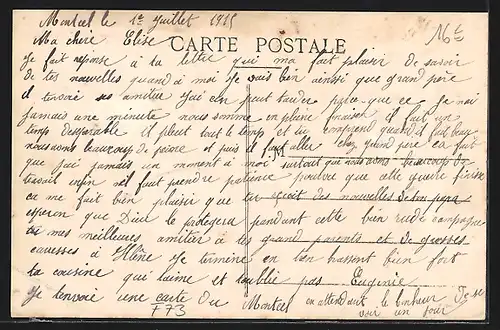 Montcel le 1e Juillet 1915
Ma chère Elise CARTE POSTALE
Je fait reponse à ta lettre qui ma fait plaisir de savoir
de tes nouvelles quand à moi je vais bien ainssi que grand père
il tenvoie ses amitier Jai en peut tarder parce que ce je nai
jamais une minute nous somme en pleine il fait un
temps il pleut tout le temps et tu comprend quand il fait beau
nous avons beaucoup de et puis il faut aller chez grand père ça fait
que jai jamais un moment à moi surtout que nous avons beaucoup de
travail enfin il faut prendre patience pourvue que cette guerre finisse
ca me fait bien plaisir que tu reçoit des nouvelles de ton papa
esperon que Dieu le protegera pendant cette bien rude campagne
mes meilleures amitier à tes grand parents et de grosses
caresses à Hélène Je termine en ten bien fort
ta cousine qui taime et toublie pas Eugénie
Je tenvoie une carte du Montcel en attendant le bonheur de se
voir un jour
F73